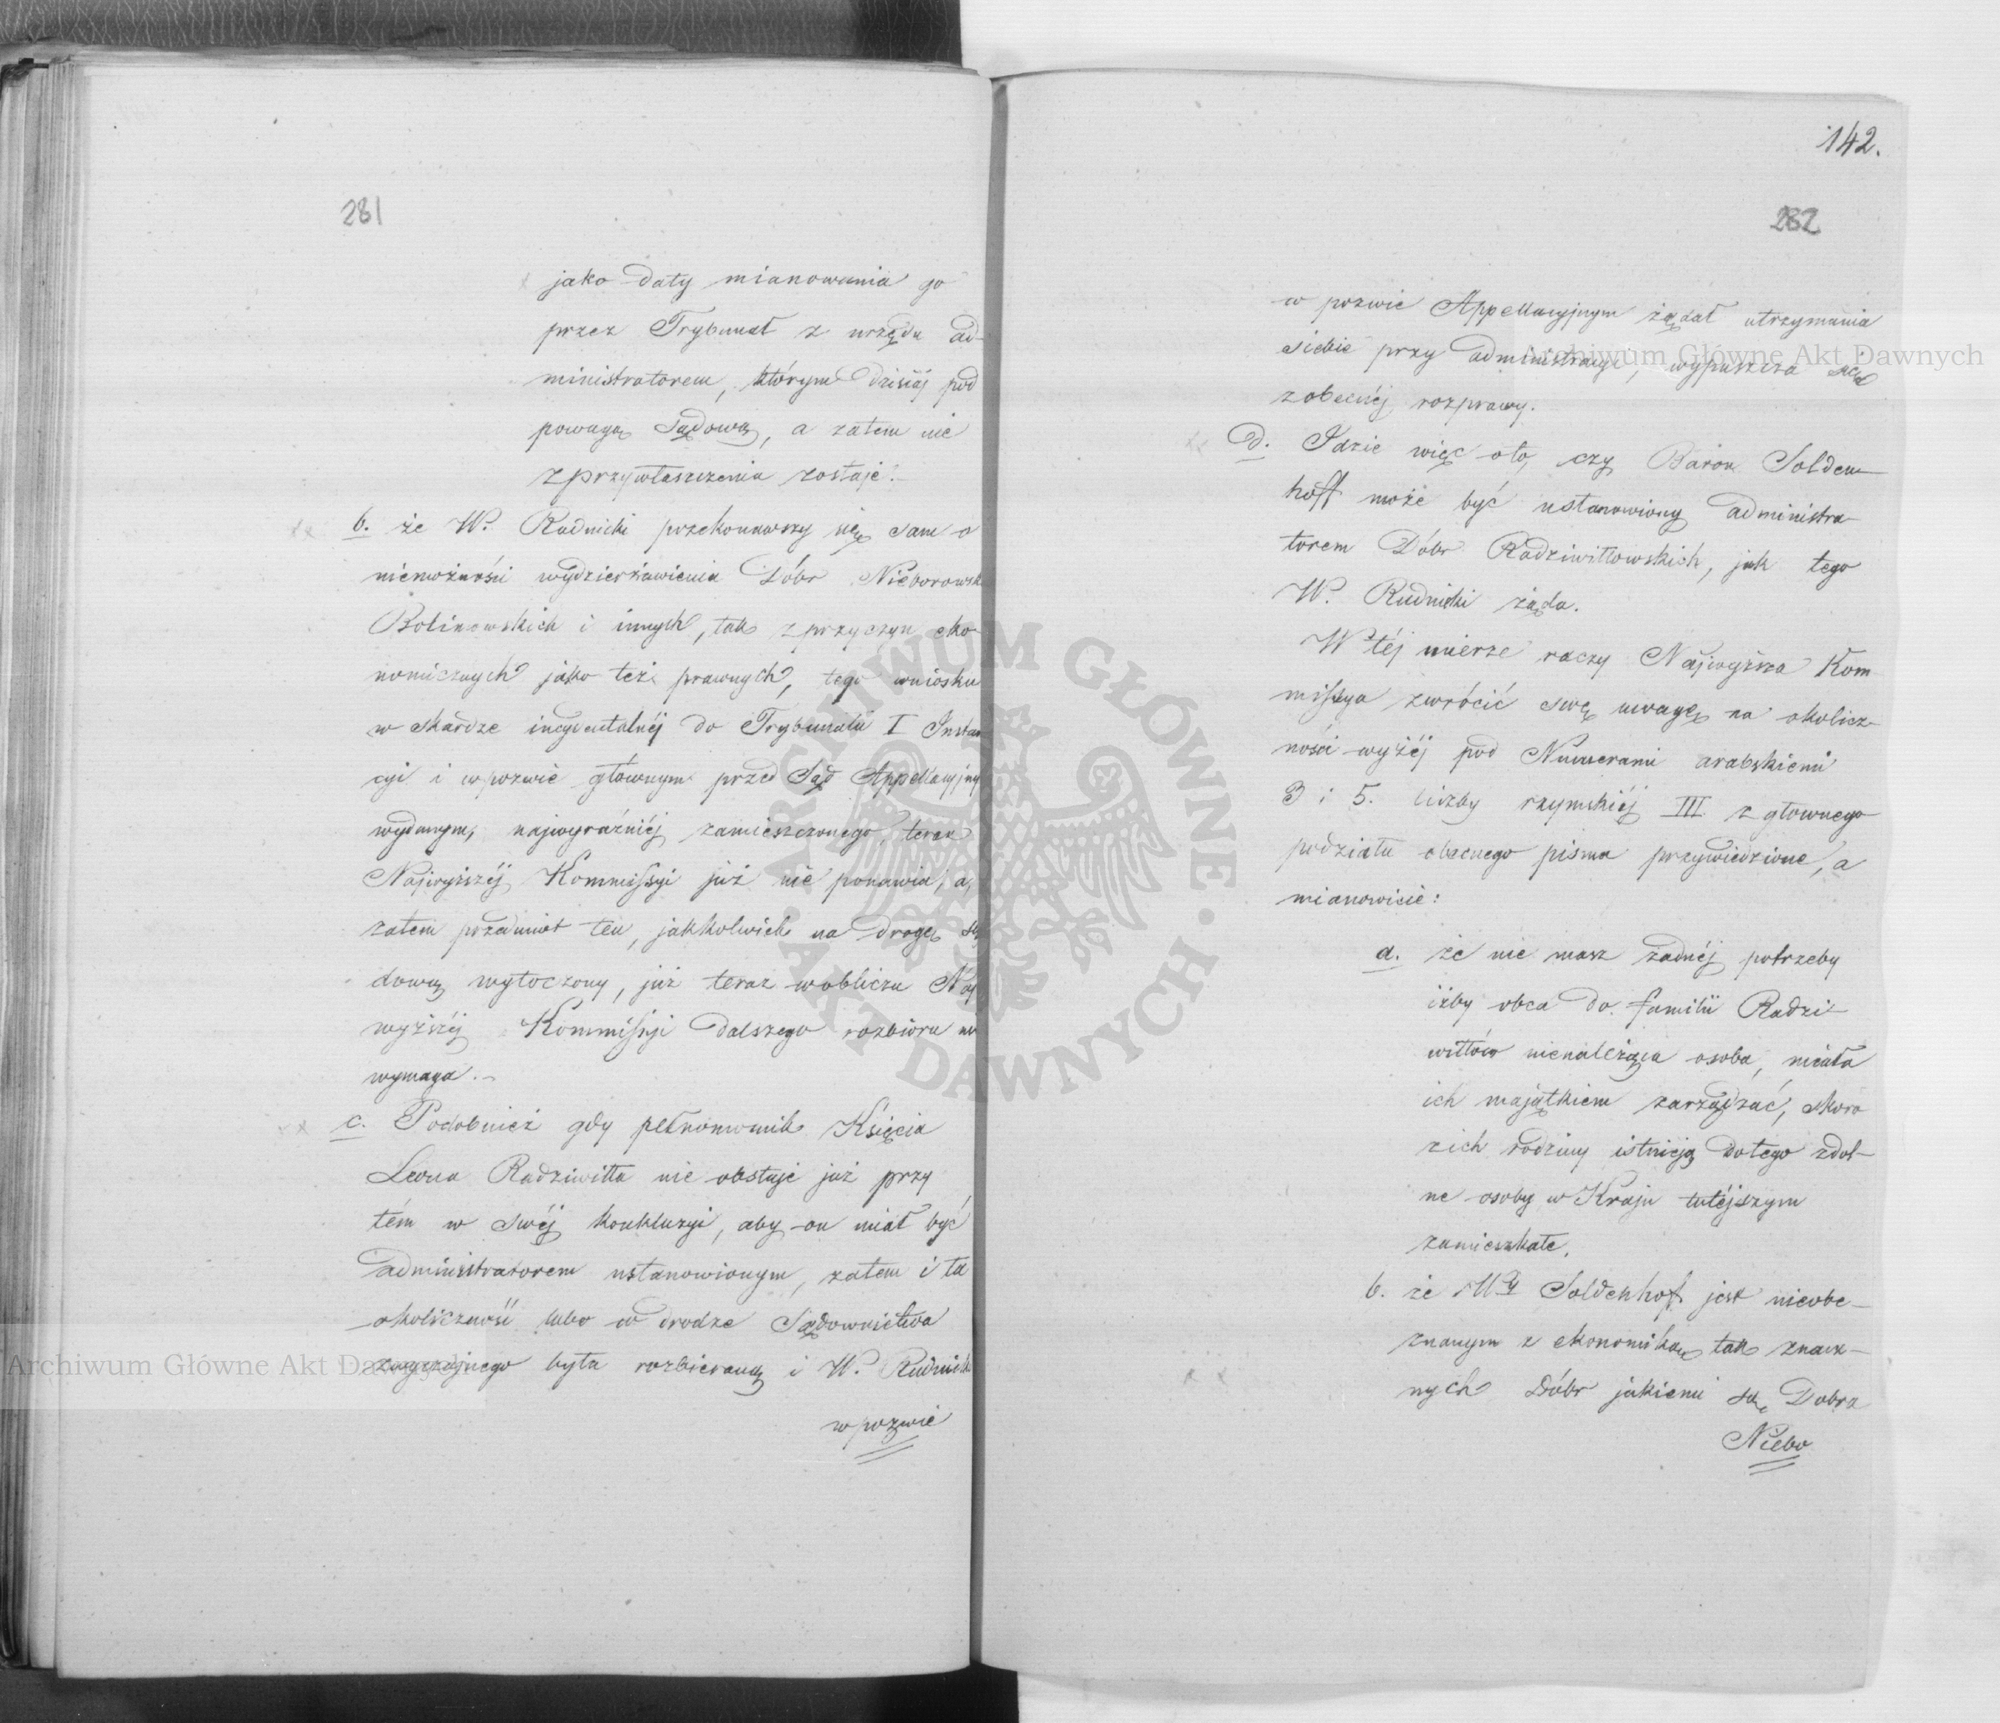 281
jako daty mianowania go
przez Trybunał z urzędu ad-
ministratorem, którym dzisiaj pod
powagą Sądową, a zatem nie
z przywłaszczenia zostaje.-
b. że W. Rudnicki przekonawszy się sam o
niemożności wydzierżawienia Dóbr Nieborowsk
Bolimowskich i innych, tak z przyczyn eko-
nomicznych jako też prawnych, tego wniosku
w skardze incydentalnéj do Trybunału I Instan
cyi i w pozwie głównym przed Sąd Appellacyjny
wydanym, najwyraźniéj zamieszczonego, teraz
Najwyższéj Kommissyi już nie ponawia, a
zatem przedmiot ten, jakkolwiek na drogę są
dową wytoczony, już teraz w obliczu Naj
wyższéj Kommissyi dalszego rozbioru nie
wymaga.-
c. Podobnież gdy pełnomocnik Księcia
Leona Radziwiłła nie obstaje już przy
tém w swéj konkluzyi, aby on miał być
administratorem ustanowionym, zatem i ta
okoliczność lubo w drodze Sądownictwa
zwyczajnego była rozbieraną i W. Rudnicki
w pozwie
142.
282
w pozwie Appellacyjnym żądał utrzymania
siebie przy administracyi, wypuszcza się
z obecnéj rozprawy.
D. Idzie więc oto, czy Baron Solden-
hoff może być ustanowiony administra-
torem Dóbr Radziwiłłowskich, jak tego
W. Rudnicki żąda.
W téj mierze raczy Najwyższa Kom-
missya zwrócić swą uwagę na okolicz-
ności wyżéj pod Numerami arabskiemi
3 i 5. liczby rzymskiéj III z głownego
podziału obecnego pisma przywiedzione, a
mianowicie:
a. że nie masz żadnéj potrzeby
iżby obca do familii Radzi-
wiłłów nienależąca osoba, miała
ich majątkiem zarządzać, skoro
z ich rodziny istnieją do tego zdol-
ne osoby w Kraju tutéjszym
zamieszkałe.
b. że Soldenhof jest nieobe-
znanym z ekonomiką tak znacz-
nych Dóbr jakiemi są Dobra
Niebo
Archiwum Główne Akt Dawnych
Archiwum Główne Akt Dawnych
ARCHIWUM GŁÓWNE · AKT DAWNYCH ·